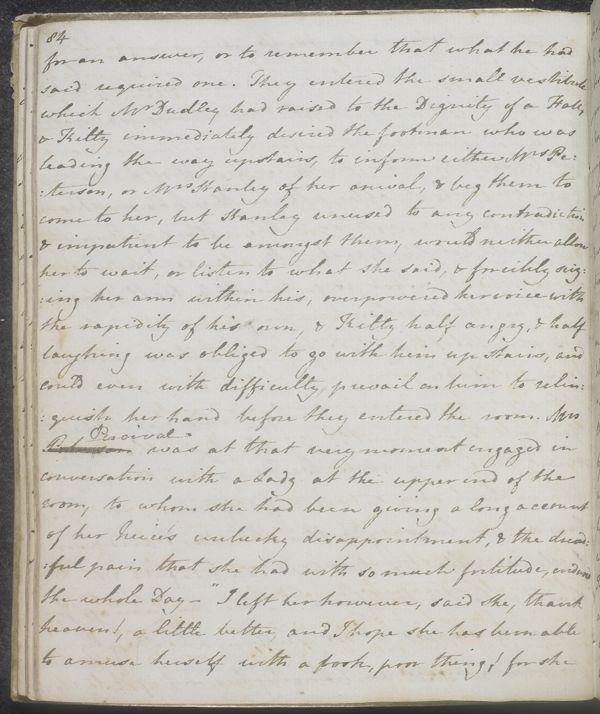 84
for an answer, or to remember that what he had
said required one. They entered the small vestibule
which Mr Dudley had raised to the Dignity of a Hall,
& Kitty immediately desired the footman who was
leading the way upstairs, to inform either Mrs Pe:
:terson, or Mrs Stanley of her arrival, & beg them to
come to her, but Stanley unused to any contradiction
& impatient to be amongst them, would neither allow
her to wait, or listen to what she said, & forcibly seiz:
:ing her arm within his, overpowered her voice with
the rapidity of his own, & Kitty half angry, & half
laughing was obliged to go with him up stairs, and
could even with difficulty prevail on him to relin:
:quish her hand before they entered the room. Mrs
Percival
was at that very moment engaged in
conversation with a Lady at the upper end of the
room, to whom she had been giving a long account
of her Neice's unlucky disappointment, & the dread:
:ful pain that she had with so much fortitude, endured
the whole Day— "I left her however, said she, thank
heaven!, a little better, and I hope she has been able
to amuse herself with a book, poor thing! for she